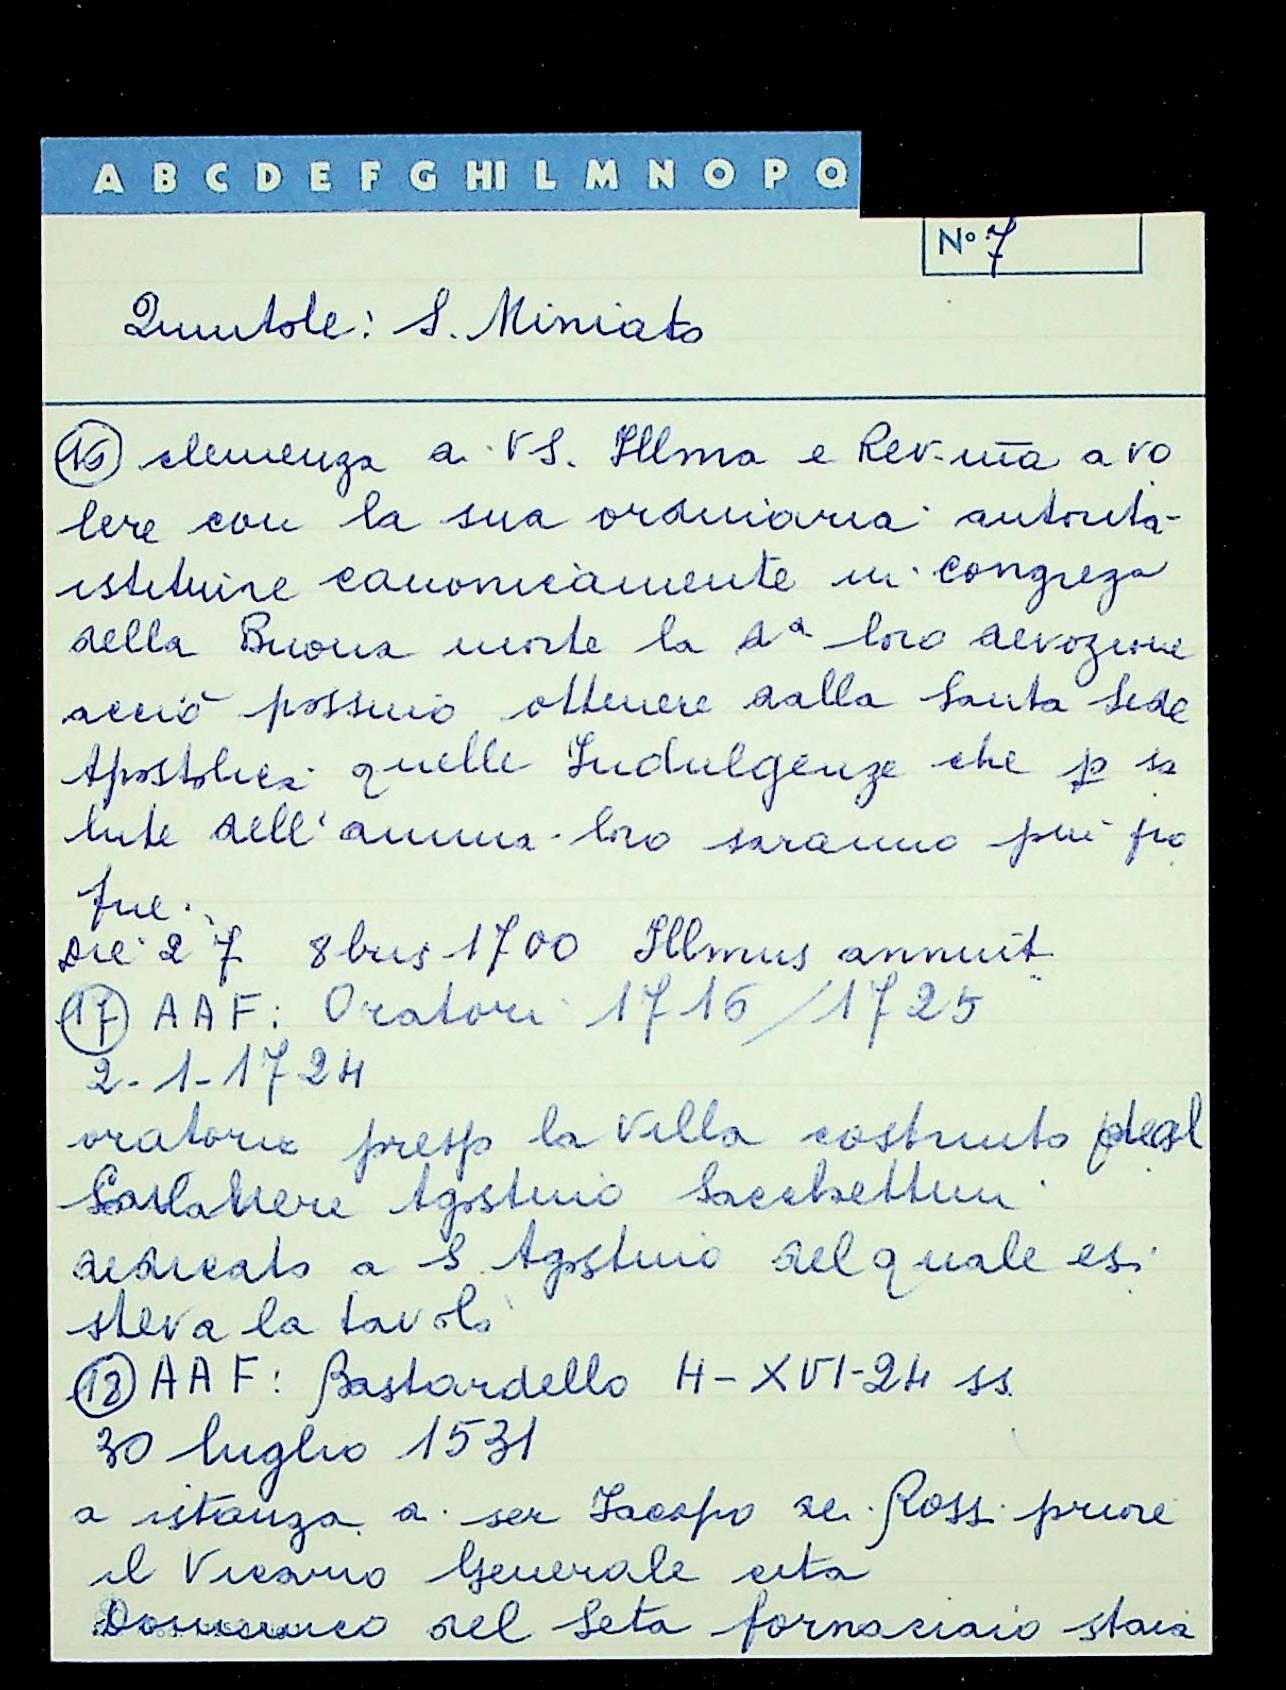 A B C D E F G HI L M N O P Q
N° 7
Quintole: S. Miniato
(16) clemenza di VS. Illma e Rev.ma a vo
lere con la sua ordinaria autorità
istituire canonicamente in congrega
della Buona morte la da loro devozione
acciò possino ottenere dalla Santa Sede
Apostolica quelle Indulgenze che p sa
lute dell'anima loro saranno più pro
fue.
Die 27 8bris 1700 Illmus annuit
(17) AAF: Oratori 1716/1725
2-1-1724
oratorio presso la villa costruito dal
Cavaliere Agostino Sacchettini
dedicato a S. Agostino del quale esi
steva la tavola
(18) AAF: Bastardello H-XVI-24 ss
30 luglio 1531
a istanza di ser Jacopo de Rossi priore
il Vicario Generale cita
Domenico del Seta fornaciaio stava